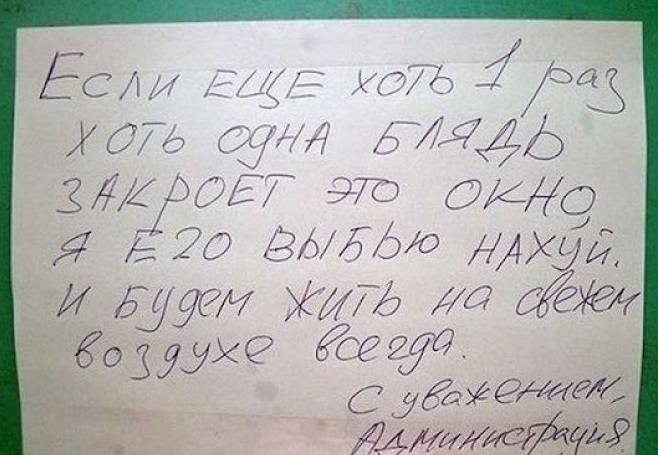 Если еще хоть 1 раз
хоть одна блядь
закроет это окно,
я его выбью нахуй.
и будем жить на свежем
воздухе всегда.
С уважением,
Администрация